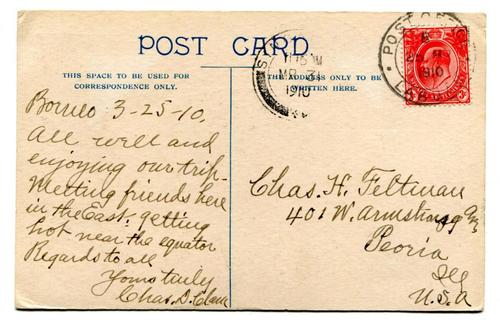 POST CARD.
THIS SPACE TO BE USED FOR
CORRESPONDENCE ONLY.
THE ADDRESS ONLY TO BE
WRITTEN HERE.
MR 31
1910
POST OFFICE
1910
LAB
Borneo 3-25-10.
All well and
enjoying our trip-
Meeting friends here
in the East. getting
hot near the equator
Regards to all
Yours truly
Chas. D.
Chas. H. Feltman
401 W. Armstrong
Peoria
Ill
U.S.A